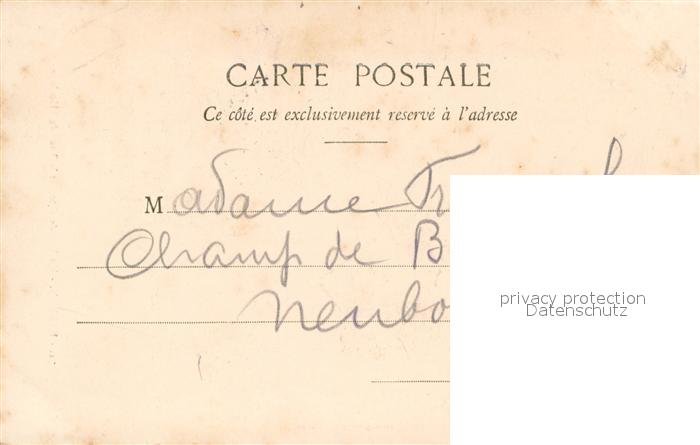 CARTE POSTALE
Ce côté est exclusivement reservé à l'adresse
Madame
Champ de
privacy protection
Datenschutz